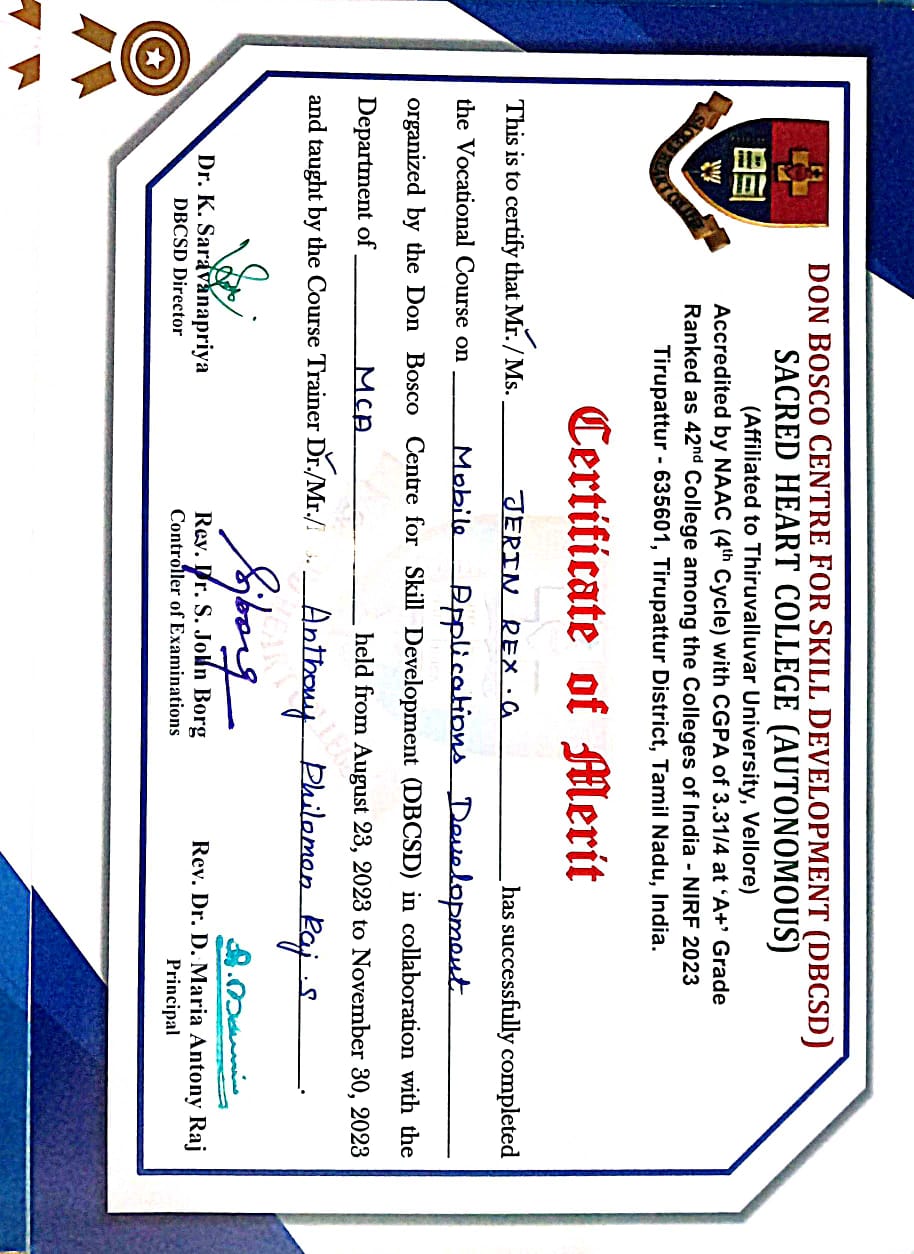 DON BOSCO CENTRE FOR SKILL DEVELOPMENT (DBCSD)
SACRED HEART COLLEGE (AUTONOMOUS)
(Affiliated to Thiruvalluvar University, Vellore)
Accredited by NAAC (4th Cycle) with CGPA of 3.31/4 at ‘A+’ Grade
Ranked as 42nd College among the Colleges of India - NIRF 2023
Tirupattur - 635601, Tirupattur District, Tamil Nadu, India.
SACRED HEART COLLEGE
Certificate of Merit
This is to certify that Mr. / Ms. JERIN REX . G has successfully completed
the Vocational Course on Mobile Applications Development
organized by the Don Bosco Centre for Skill Development (DBCSD) in collaboration with the
Department of MCA held from August 23, 2023 to November 30, 2023
and taught by the Course Trainer Dr./Mr./ s. Anthony Philomon Raj . S .
Dr. K. Saravanapriya
DBCSD Director
Rev. Dr. S. John Borg
Controller of Examinations
Rev. Dr. D. Maria Antony Raj
Principal